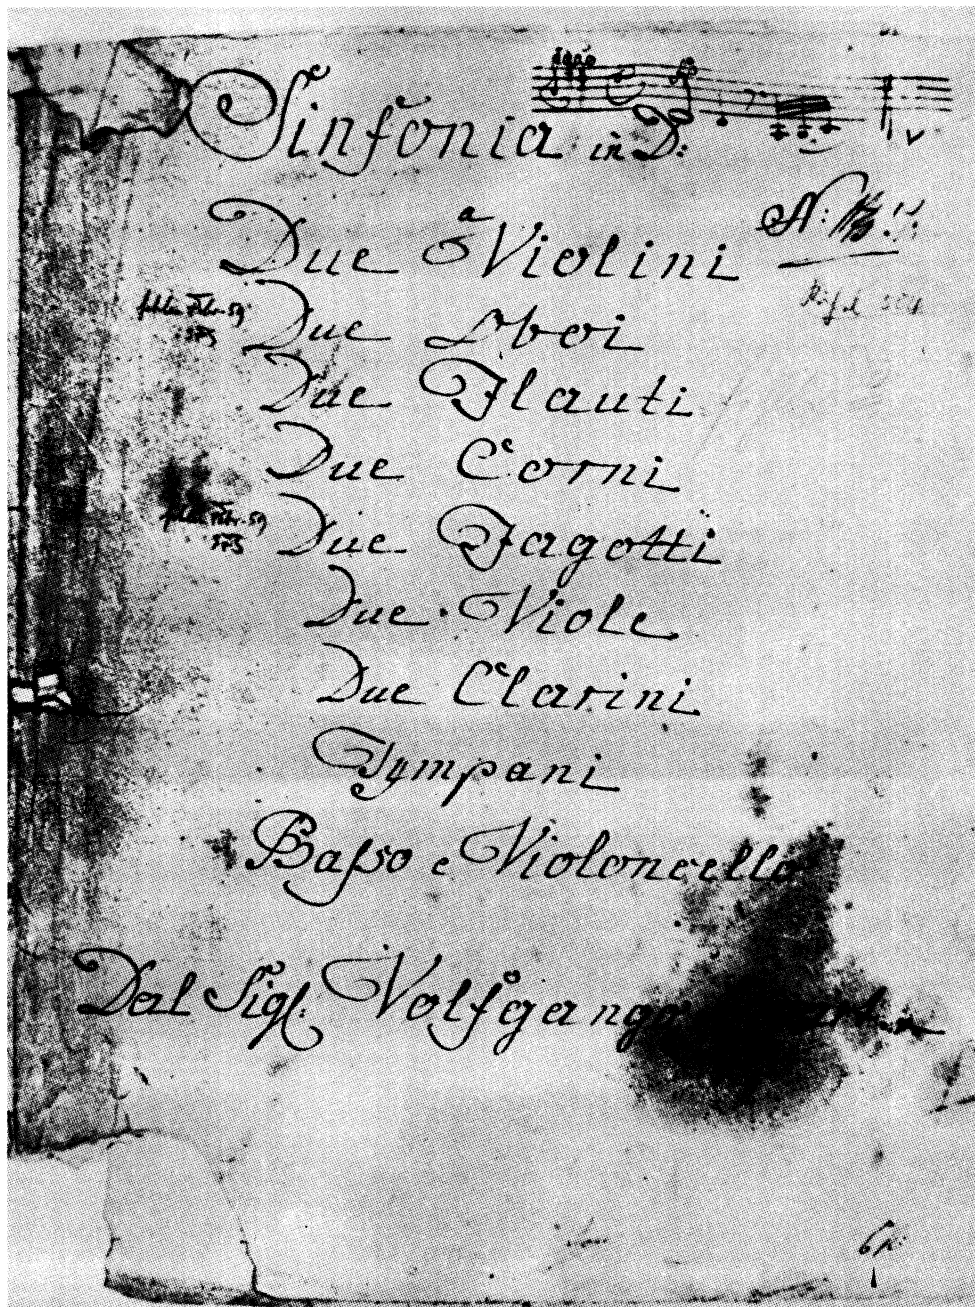 Sinfonia in D:
a
Due Violini
Due Oboi
Due Flauti
Due Corni
Due Fagotti
Due Viole
Due Clarini
Tympani
Baſso e Violoncello
Dal Sigl: Volfgango